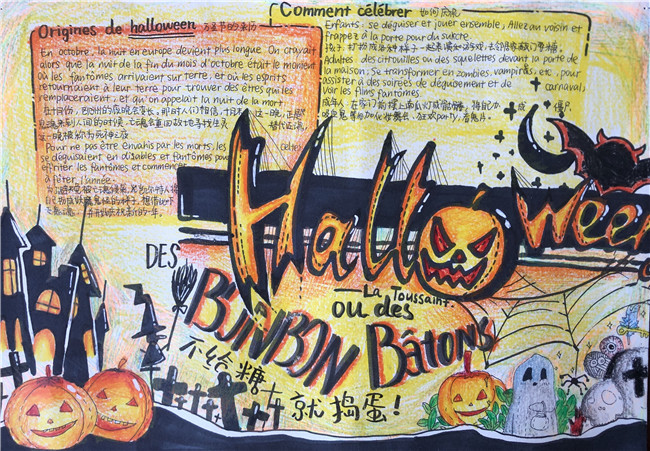 Origines de halloween 万圣节的来历
En octobre, la nuit en europe devient plus longue. On croyait
alors que la nuit de la fin du mois d'octobre était le moment
où les fantômes arrivaient sur terre, et où les esprits
retournaient à leur terre pour trouver des êtres qui les
remplaceraient, et qu'on appelait la nuit de la mort
在十月份，欧洲的夜晚会变长，那时人们相信，十月
这一晚
Pour ne pas être envahis par les morts, les
se déguisaient en diables et fantômes pour
effriter les fantômes et commencer
à fêter l'année.
Comment célébrer 如何庆祝
Enfants: se déguiser et jouer ensemble, Allez au voisin et
frappez à la porte pour du sukcre.
孩子：打扮成各种样子一起来嬉耍游戏，去邻居家敲门要糖。
Adultes: des citrouilles ou des squelettes devant la porte de
la maison; Se transformer en zombies, vampires, etc., pour
assister à des soirées de déguisement et de carnaval,
voir les films fantômes
成年人：在家门前摆上南瓜灯或骷髅
Halloween
La Toussaint.
DES
BONBON
ou des
Bâtons
不给糖
就捣蛋！